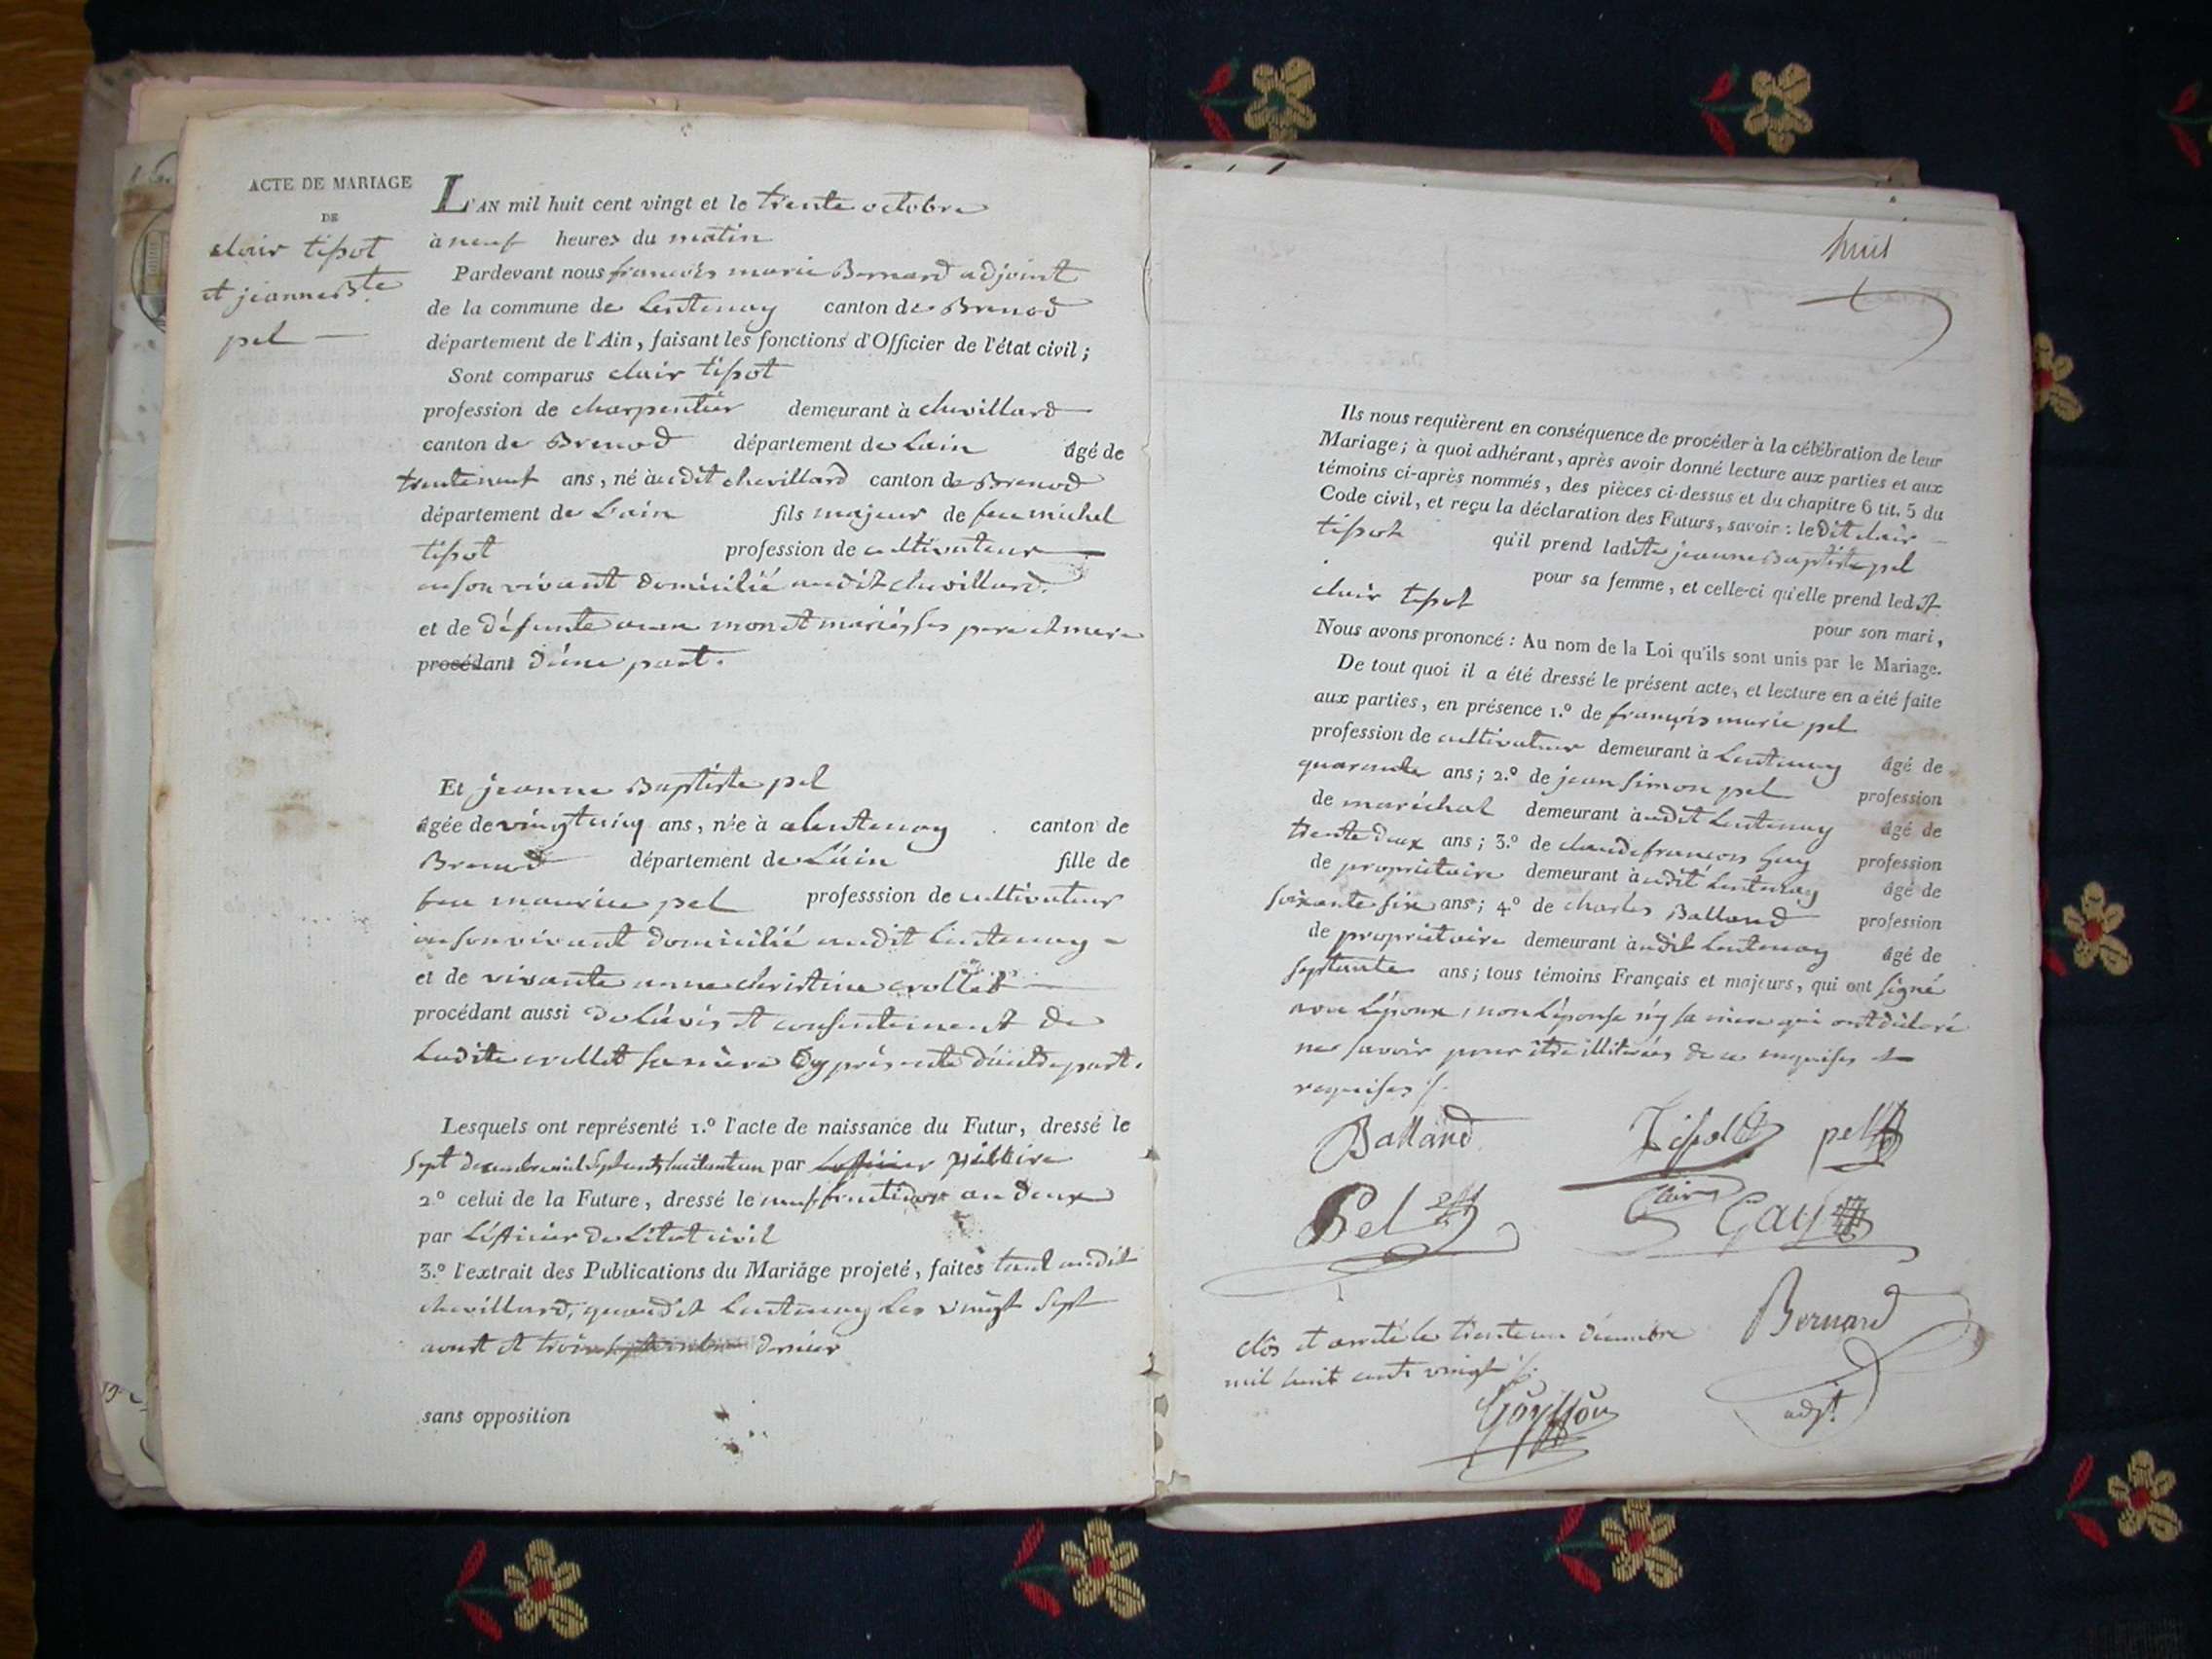 ACTE DE MARIAGE
DE
clair tissot
et jeanne Bte
pel
L'AN mil huit cent vingt et le trente octobre
à neuf heures du matin
Pardevant nous françois marie Bernard adjoint
de la commune de Lentenay canton de Brenod
département de l'Ain, faisant les fonctions d'Officier de l'état civil;
Sont comparus clair tissot
profession de charpentier demeurant à chevillard
canton de Brenod département de Lain âgé de
trenteneuf ans, né audit chevillard canton de Brenod
département de L'ain fils majeur de feu michel
tissot profession de cultivateur
en son vivant domicilié audit chevillard.
et de défunte anne monet mariés, ses pere et mere
procédant d'une part.
Et jeanne Baptiste pel
âgée de vingt cinq ans, née à alentenay canton de
Brenod département de L'ain fille de
feu maurice pel professsion de cultivateur
en son vivant domicilié audit Lentenay
et de vivante anne christine crollet
procédant aussi de L'avis et consentement de
Ladite crollet sa mère Cy présente d'autre part.
Lesquels ont représenté 1.º l'acte de naissance du Futur, dressé le
sept decembre mil sept cent huitante un par
2º celui de la Future, dressé le neuf fructidor an deux
par L'officier de L'état civil
3.º l'extrait des Publications du Mariage projeté, faites tant audit
chevillard, qu'audit Lentenay Les vingt sept
aout et trois septembre dernier
sans opposition
huit
Ils nous requièrent en conséquence de procéder à la célébration de leur
Mariage; à quoi adhérant, après avoir donné lecture aux parties et aux
témoins ci-après nommés, des pièces ci-dessus et du chapitre 6 tit. 5 du
Code civil, et reçu la déclaration des Futurs, savoir: ledit clair
tissot qu'il prend ladite jeanne Baptiste pel
pour sa femme, et celle-ci qu'elle prend ledit
clair tissot pour son mari,
Nous avons prononcé: Au nom de la Loi qu'ils sont unis par le Mariage.
De tout quoi il a été dressé le présent acte, et lecture en a été faite
aux parties, en présence 1.º de françois marie pel
profession de cultivateur demeurant à Lentenay âgé de
quarante ans; 2.º de jean simon pel profession
de maréchal demeurant audit Lentenay âgé de
trente deux ans; 3.º de claude françois Gay profession
de propriétaire demeurant audit Lentenay âgé de
soixante six ans; 4.º de charles Balland profession
de propriétaire demeurant audit Lentenay âgé de
septante ans; tous témoins Français et majeurs, qui ont signé
avec L'époux, non L'épouse n'y sa mere qui ont déclaré
ne savoir pour être illitérées de ce enquises et
requises
Balland Tissot pel
Pel clair Gay
clos et arrêté le trente un décembre Bernard
mil huit cents vingt
adjt